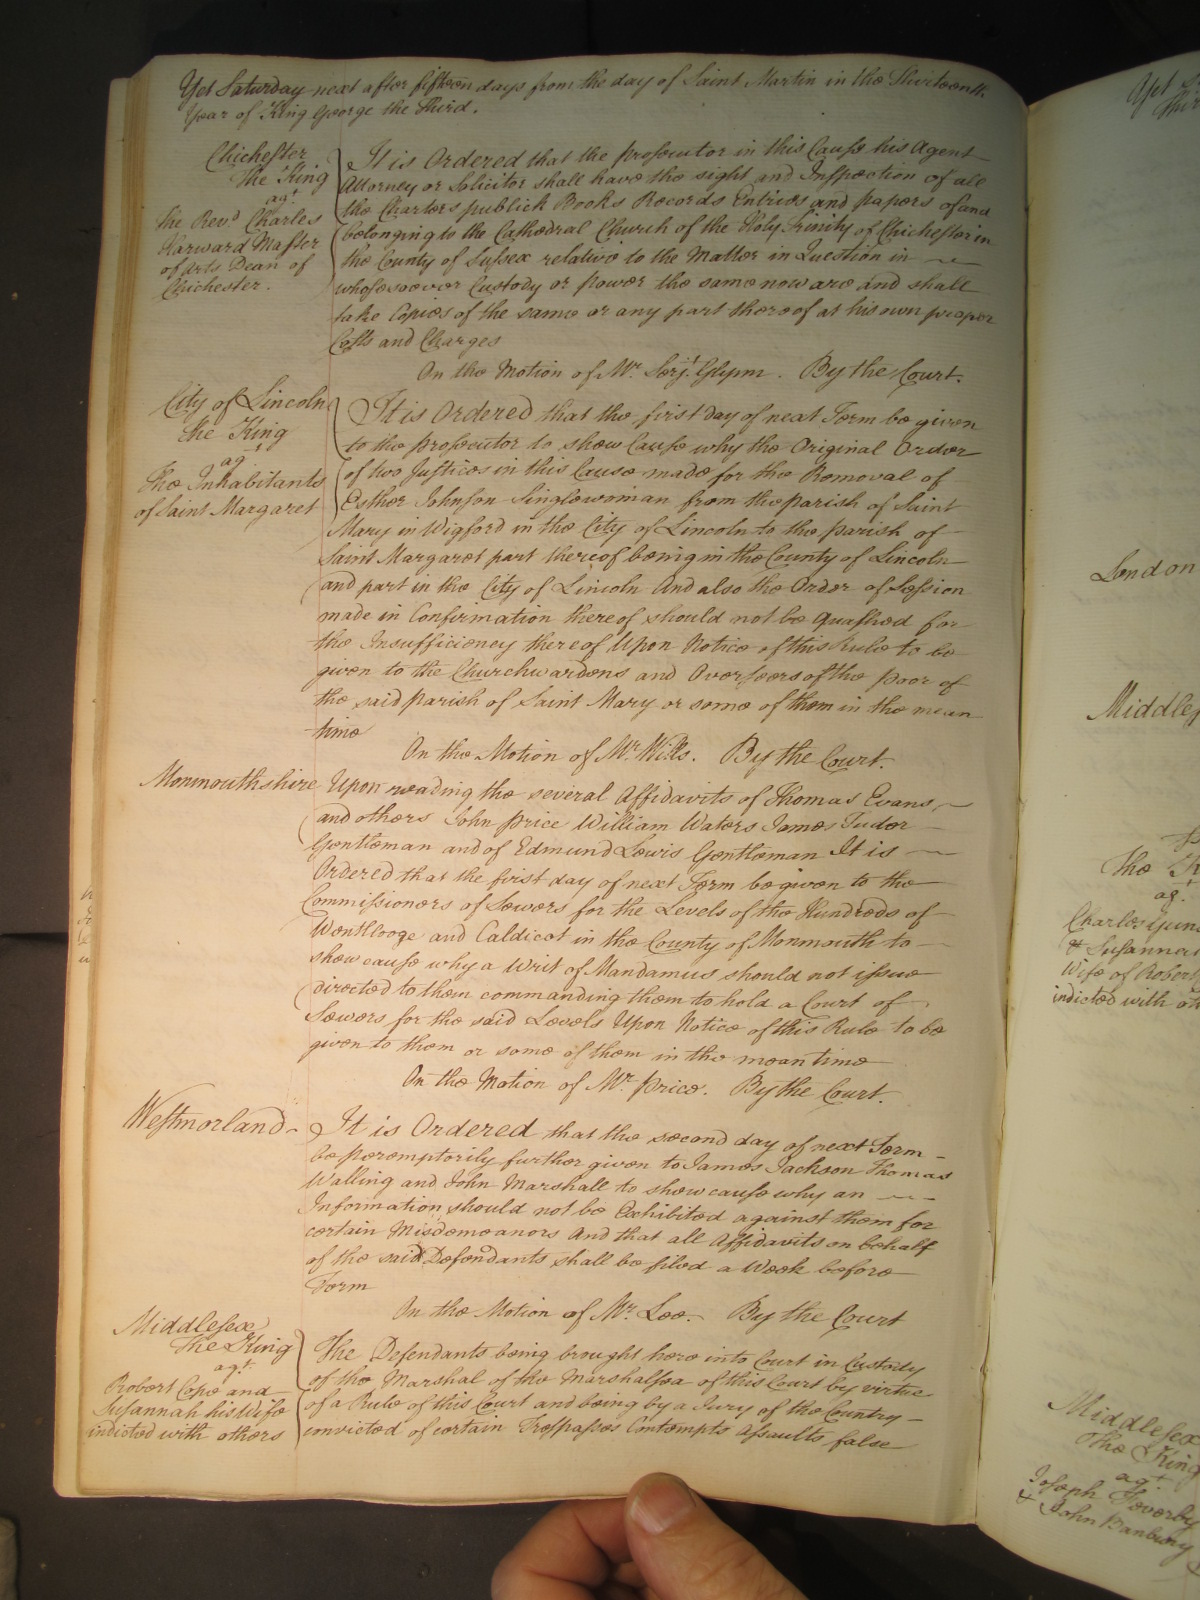 Yet Saturday next after fifteen days from the day of Saint Martin in the Thirteenth
Year of King George the Third.
Chichester
The King
agt
The Revd Charles
Harward Master
of Arts Dean of
Chichester.
It is Ordered that the prosecutor in this Cause his Agent
Attorney or Solicitor shall have the sight and Inspection of all
the Charters publick Books Records Entries and papers of and
belonging to the Cathedral Church of the Holy Trinity of Chichester in
the County of Sussex relative to the Matter in Question in
whosesoever Custody or power the same now are and shall
take Copies of the same or any part thereof at his own proper
Costs and Charges
On the Motion of Mr. Serjt. Glynn. By the Court.
City of Lincoln
the King
agt
The Inhabitants
of Saint Margaret
It is Ordered that the first day of next Term be given
to the prosecutor to shew Cause why the Original Order
of two Justices in this Cause made for the Removal of
Esther Johnson Singlewoman from the parish of Saint
Mary in Wigford in the City of Lincoln to the parish of
Saint Margaret part thereof being in the County of Lincoln
and part in the City of Lincoln And also the Order of Session
made in Confirmation thereof should not be quashed for
the Insufficiency thereof Upon Notice of this Rule to be
given to the Churchwardens and Overseers of the poor of
the said parish of Saint Mary or some of them in the mean
time
On the Motion of Mr. Wills. By the Court.
Monmouthshire
Upon reading the several Affidavits of Thomas Evans,
and others John Price William Waters James Tudor
Gentleman and of Edmund Lewis Gentleman It is
Ordered that the first day of next Term be given to the
Commissioners of Sewers for the Levels of the Hundreds of
Wentlooge and Caldicot in the County of Monmouth to
shew cause why a Writ of Mandamus should not issue
directed to them commanding them to hold a Court of
Sewers for the said Levels Upon Notice of this Rule to be
given to them or some of them in the mean time
On the Motion of Mr. Price. By the Court.
Westmorland
It is Ordered that the second day of next Term
be peremptorily further given to James Jackson Thomas
Walling and John Marshall to shew cause why an
Information should not be Exhibited against them for
certain Misdemeanors And that all Affidavits on behalf
of the said Defendants shall be filed a Week before
Term
On the Motion of Mr. Lee. By the Court
Middlesex
The King
agt.
Robert Cope and
Susannah his Wife
indicted with others
The Defendants being brought here into Court in Custody
of the Marshal of the Marshalsea of this Court by virtue
of a Rule of this Court and being by a Jury of the Country
convicted of certain Trespasses Contempts Assaults false
Yet
London
Middles
The K
agt
Charles
& Susanna
Wife of Robert
indicted with
Middlesex
The King
agt
Joseph
& John Banbury